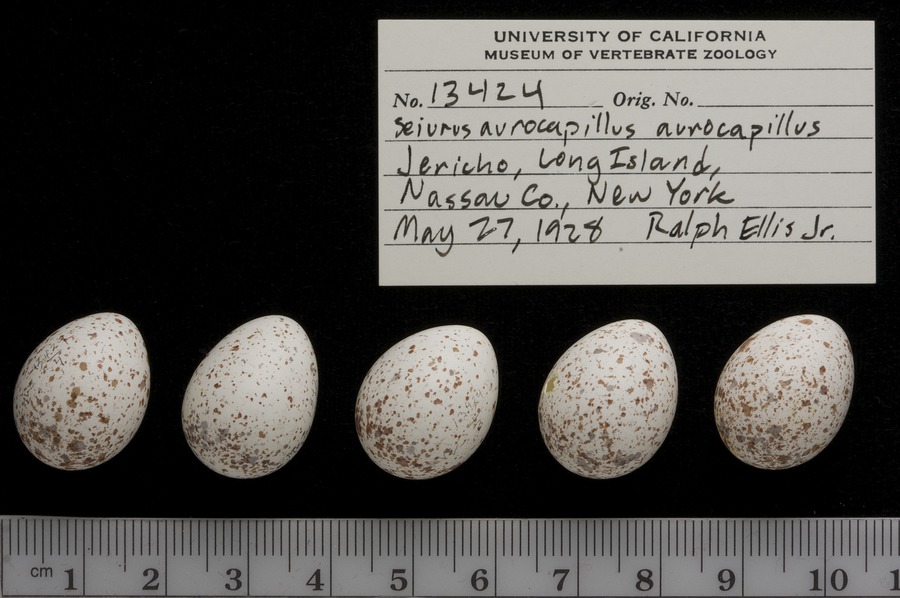 UNIVERSITY OF CALIFORNIA
MUSEUM OF VERTEBRATE ZOOLOGY
No. 13424 Orig. No.
Seiurus aurocapillus aurocapillus
Jericho, Long Island,
Nassau Co., New York
May 27, 1928 Ralph Ellis Jr.
cm 1 2 3 4 5 6 7 8 9 10 1